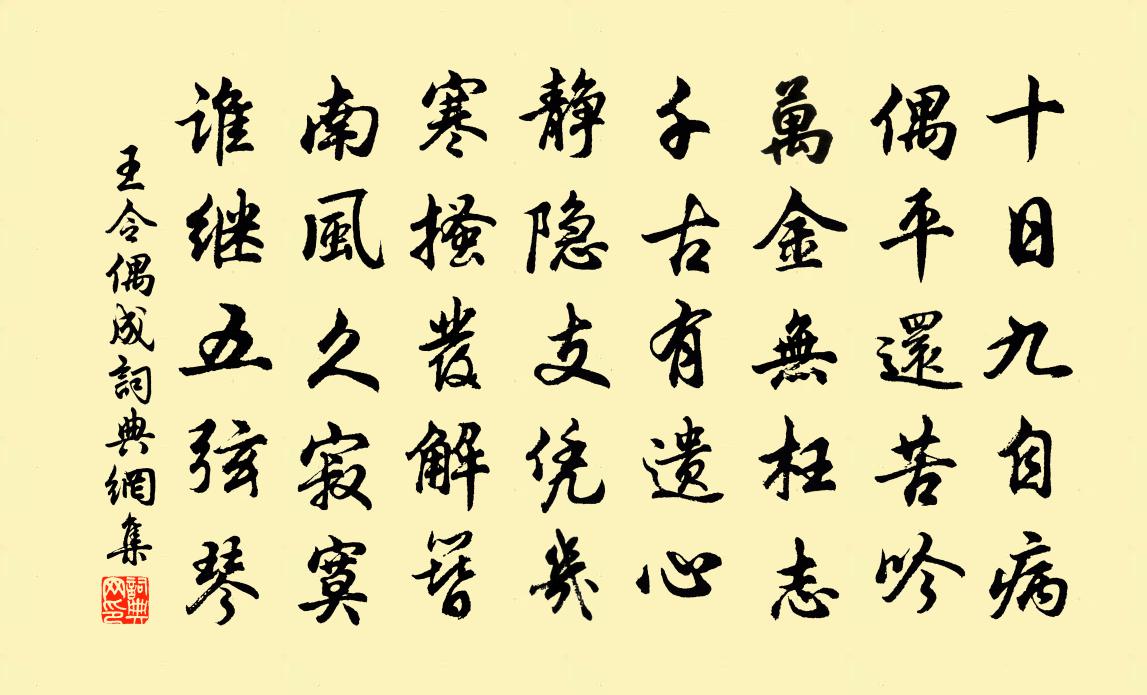 十日九自病
偶平還苦吟
萬金無枉志
千古有遗心
静隐支凭幾
寒搔發解簪
南風久寂寞
谁继五弦琴
王令偶成詞典網集
詞典網印